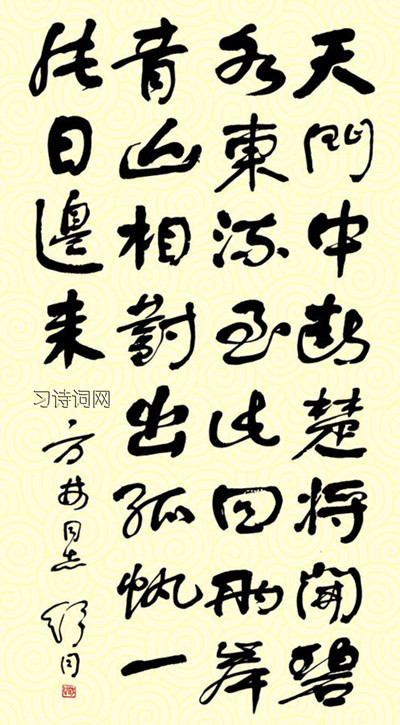 天門中断楚将開碧
水東流至此回兩岸
青山相對出孤帆一
片日邊来
方同志 舒同
习诗词网